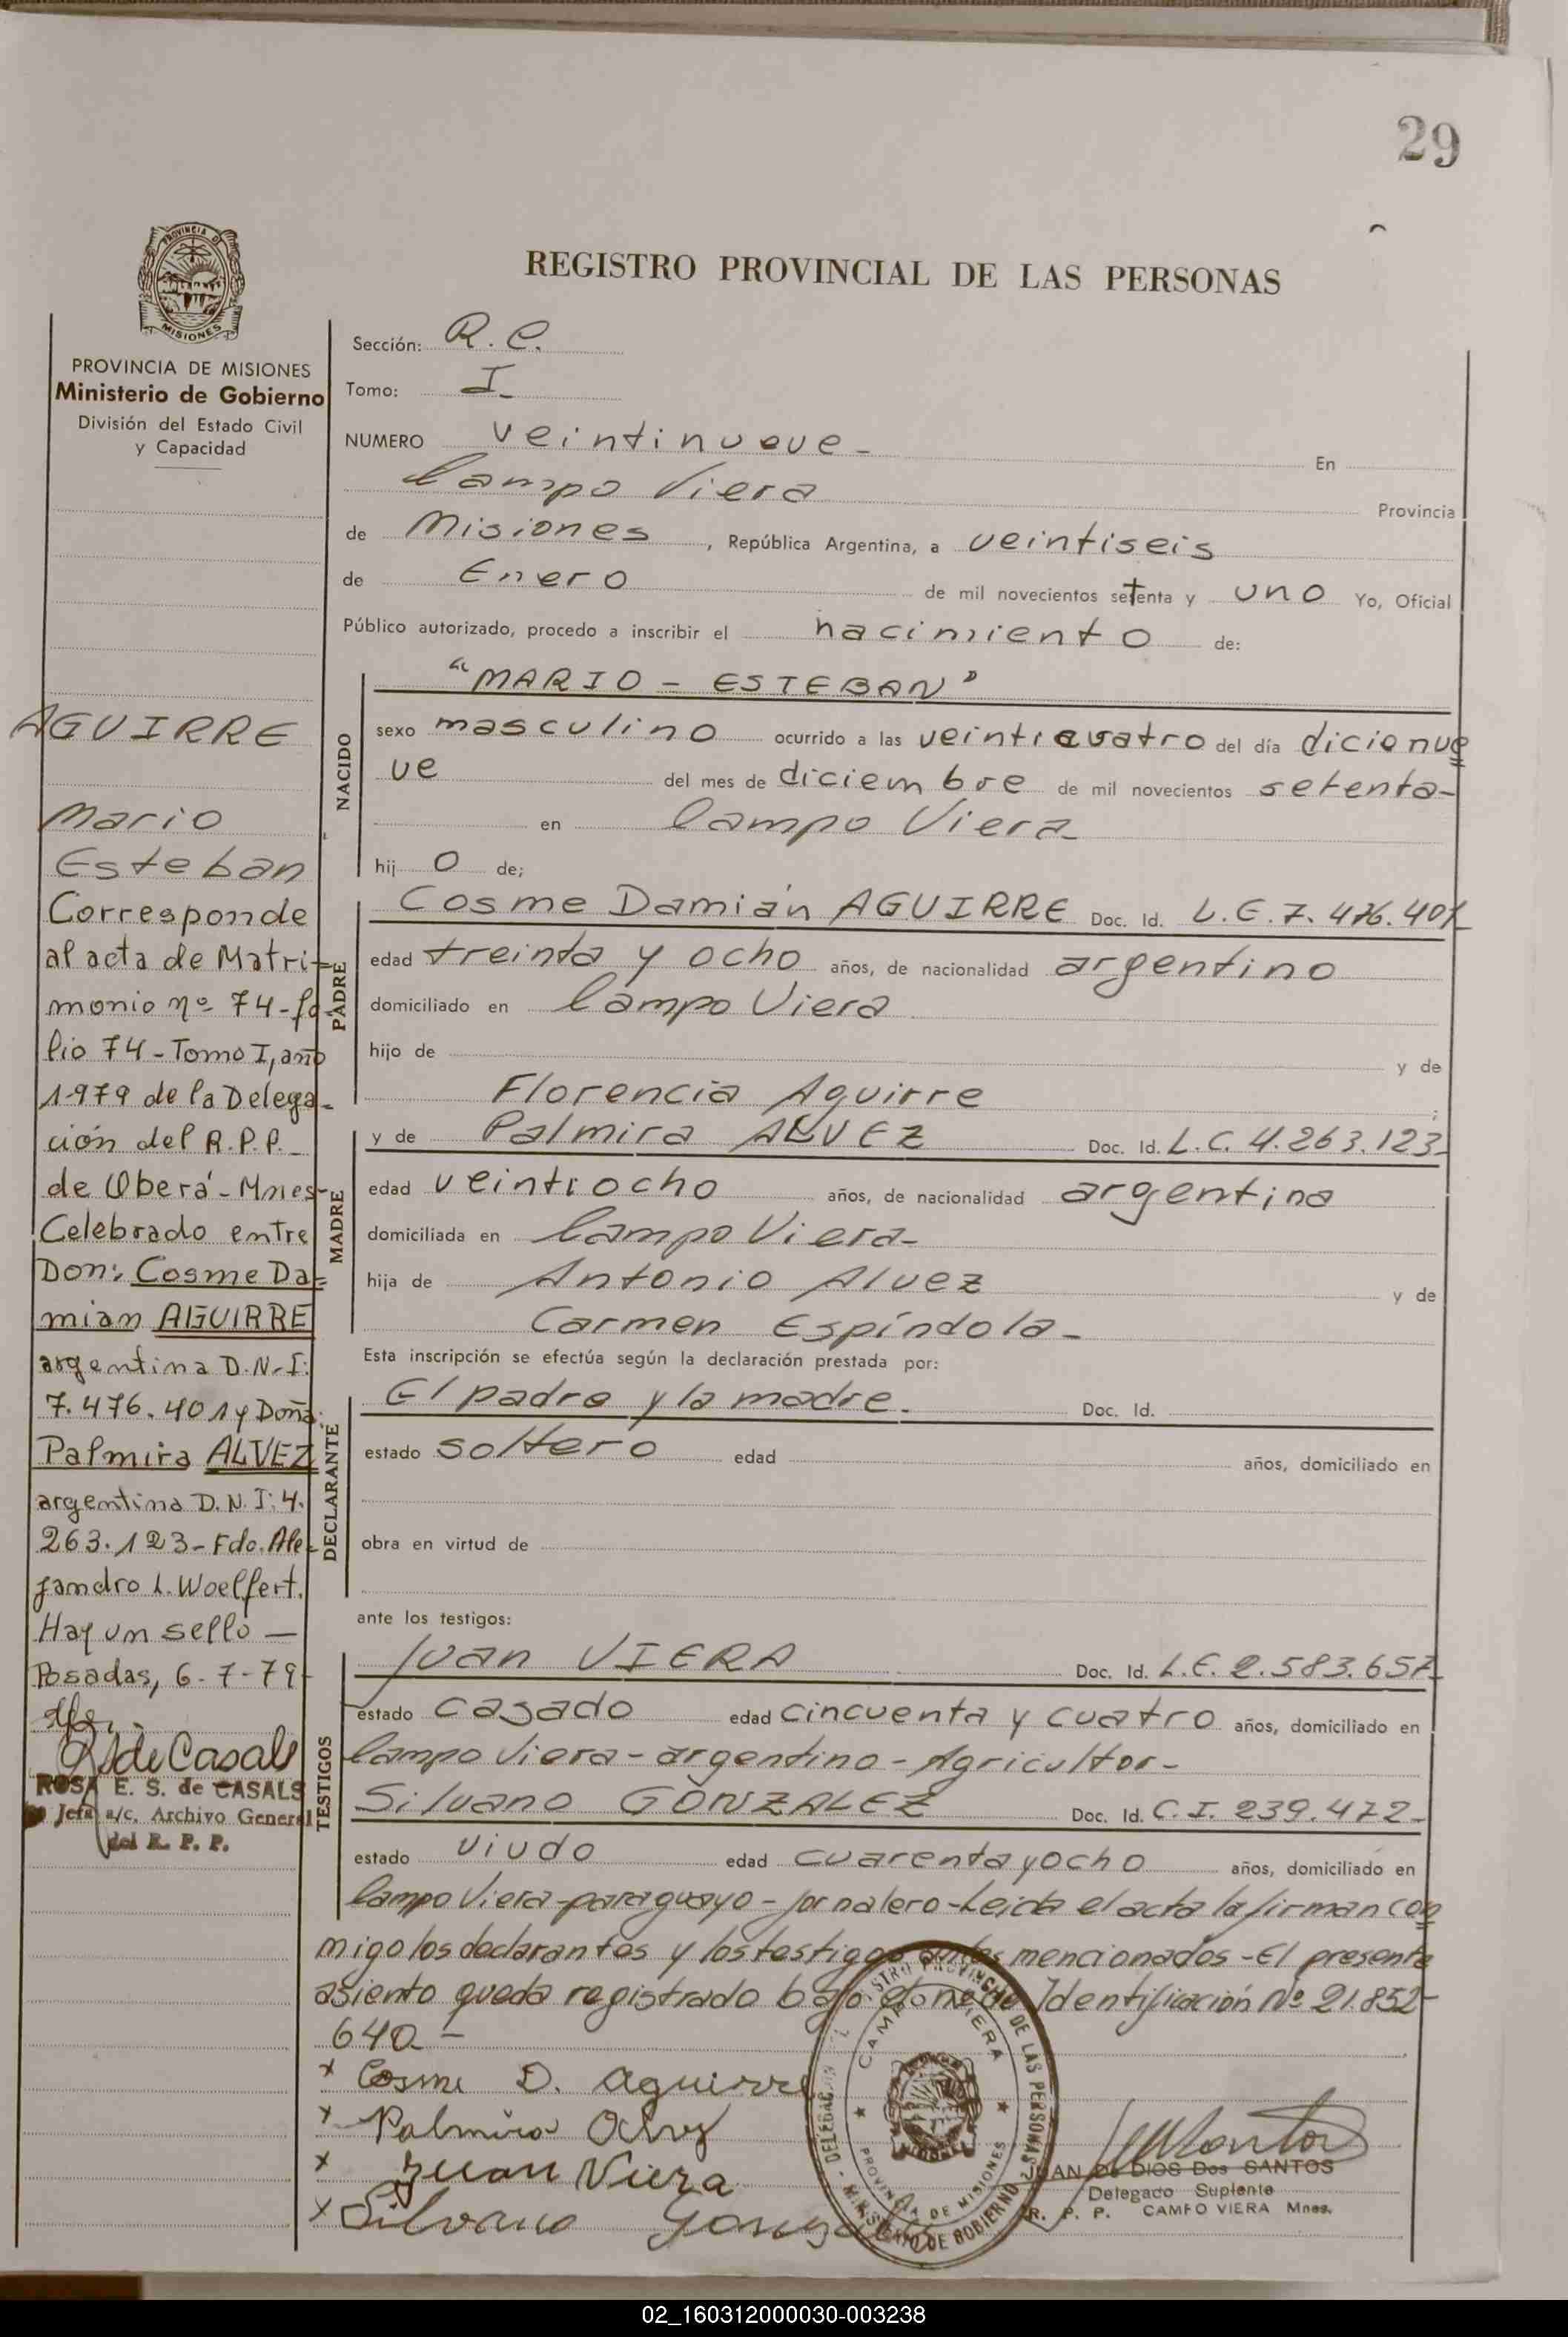 29
REGISTRO PROVINCIAL DE LAS PERSONAS
PROVINCIA DE MISIONES
Ministerio de Gobierno
División del Estado Civil
y Capacidad
AGUIRRE
Mario
Esteban
Corresponde
al acta de Matri=
monio nº 74-fo
lio 74-Tomo I, año
1979 de la Delega-
ción del R.P.P.
de Oberá-Mnes-
Celebrado entre
Don: Cosme Da=
mian AGUIRRE
argentina D.N.I:
7.476.401 y Doña:
Palmira ALVEZ
argentina D.N.I:4.
263.123-Fdo. Ale-
jandro L. Woelfert.
Hay un sello —
Posadas, 6-7-79-
de Casals
ROSA E. S. de CASALS
Jefa a/c. Archivo General
del R. P. P.
Sección: R.C.
Tomo: I
NUMERO veintinueve- En
Campo Viera Provincia
de Misiones, República Argentina, a veintiseis
de Enero de mil novecientos setenta y uno Yo, Oficial
Público autorizado, procedo a inscribir el nacimiento de:
NACIDO
"MARIO-ESTEBAN"
sexo masculino ocurrido a las veinticuatro del día dicienue
ve del mes de diciembre de mil novecientos setenta-
en Campo Viera
hij o de;
PADRE
Cosme Damián AGUIRRE Doc. Id. L.E.7.476.401
edad treinta y ocho años, de nacionalidad argentino
domiciliado en Campo Viera
hijo de y de
Florencia Aguirre;
MADRE
y de Palmira ALVEZ Doc. Id. L.C.4.263.123-
edad veintiocho años, de nacionalidad argentina
domiciliada en Campo Viera-
hija de Antonio Alvez y de
Carmen Espíndola-
Esta inscripción se efectúa según la declaración prestada por:
DECLARANTE
El padre y la madre. Doc. Id.
estado soltero edad años, domiciliado en
obra en virtud de
ante los testigos:
TESTIGOS
Juan VIERA Doc. Id. L.E.2.583.657-
estado casado edad cincuenta y cuatro años, domiciliado en
Campo Viera-argentino-Agricultor-
Silvano GONZALEZ Doc. Id. C.I. 239.472-
estado viudo edad cuarenta y ocho años, domiciliado en
Campo Viera-paraguayo-jornalero-Leida el acta la firman con
migo los declarantes y los testigos antes mencionados-El presente
asiento queda registrado bajo el Identificación Nº 21.852-
640-
x Cosme D. Aguirre
x Palmira
x Juan Viera
x Silvano Gonzalez
CAMPO VIERA
PROVINCIA DE MISIONES
MINISTERIO DE GOBIERNO
JUAN DE DIOS Dos SANTOS
Delegado Suplente
R. P. P. CAMPO VIERA Mnes.
02_160312000030-003238